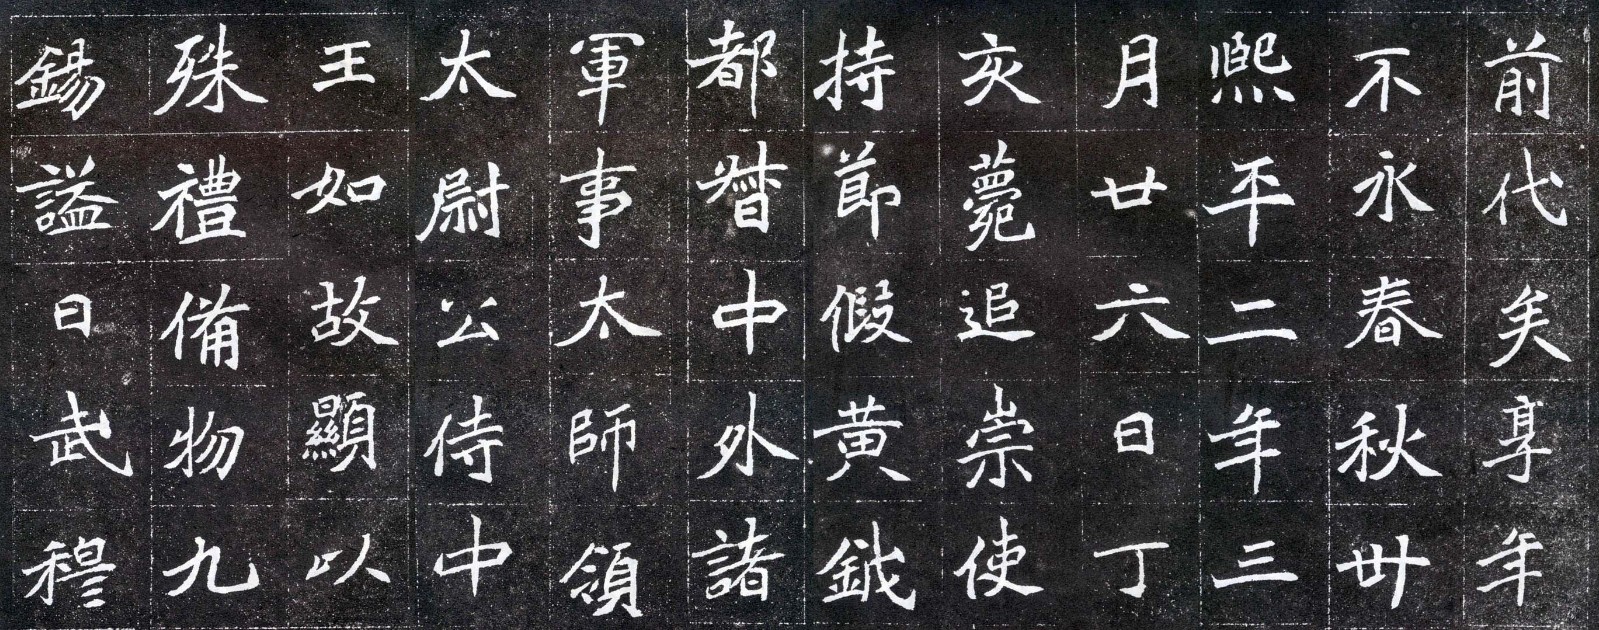 前代矣享年
不永春秋卅
熙平二年三
月廿六日丁
亥薨追崇使
持節假黄鉞
都督中外諸
軍事太師領
太尉公侍中
王如故顯以
殊禮備物九
錫謚曰武穆